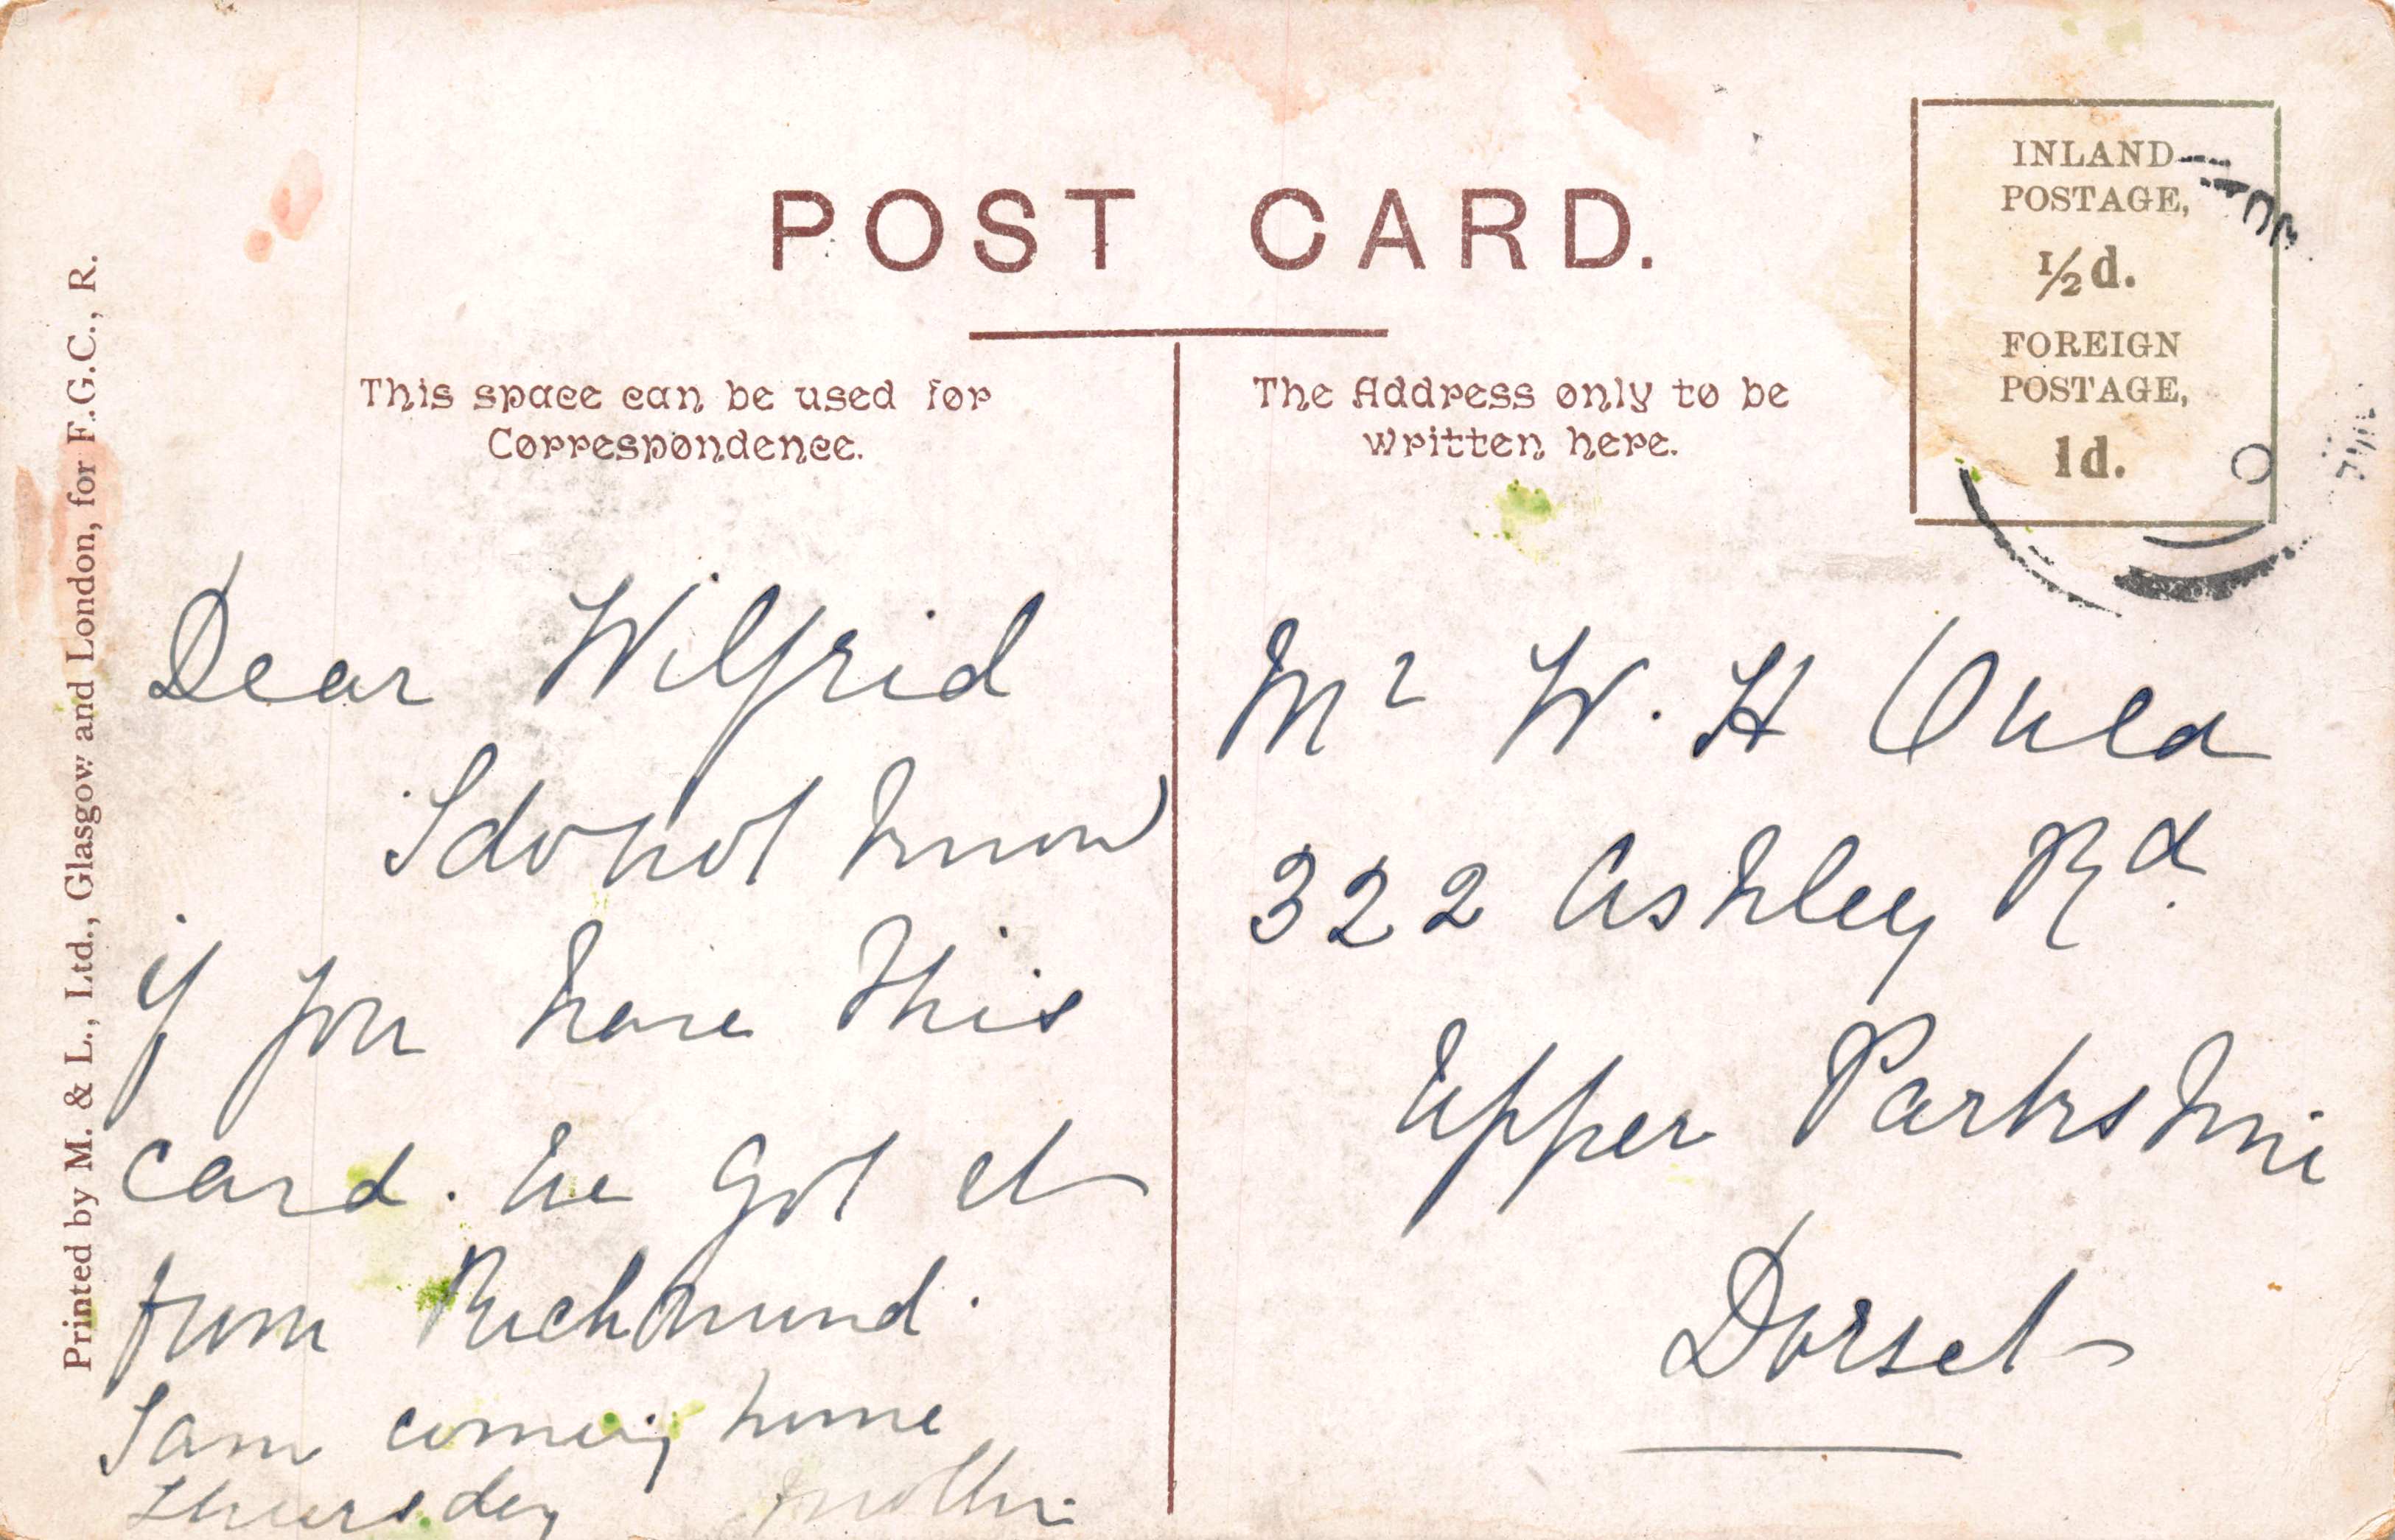 POST CARD.
INLAND
POSTAGE,
½d.
FOREIGN
POSTAGE,
1d.
This space can be used for
Correspondence.
The Address only to be
written here.
Printed by M. & L., Ltd., Glasgow and London, for F.G.C., R.
Dear Wilfrid
I do not know
if you have this
card. We got it
from Richmond.
I am coming home
Thursday Mother
Mr W. H
322 Ashley Rd.
Upper Parkstone
Dorset